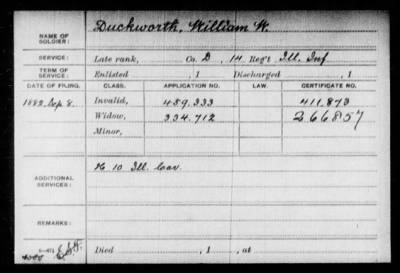 NAME OF SOLDIER: Duckworth, William W.
SERVICE: Late rank, Co. D, 14 Reg't Ill. Inf
TERM OF SERVICE: Enlisted , 1 Discharged , 1
DATE OF FILING. CLASS. APPLICATION NO. LAW. CERTIFICATE NO.
1882 Sep 8. Invalid, 459.333 411.873
Widow, 334.712 266857
Minor,
ADDITIONAL SERVICES: K 10 Ill. Cav.
REMARKS:
Died , 1 , at